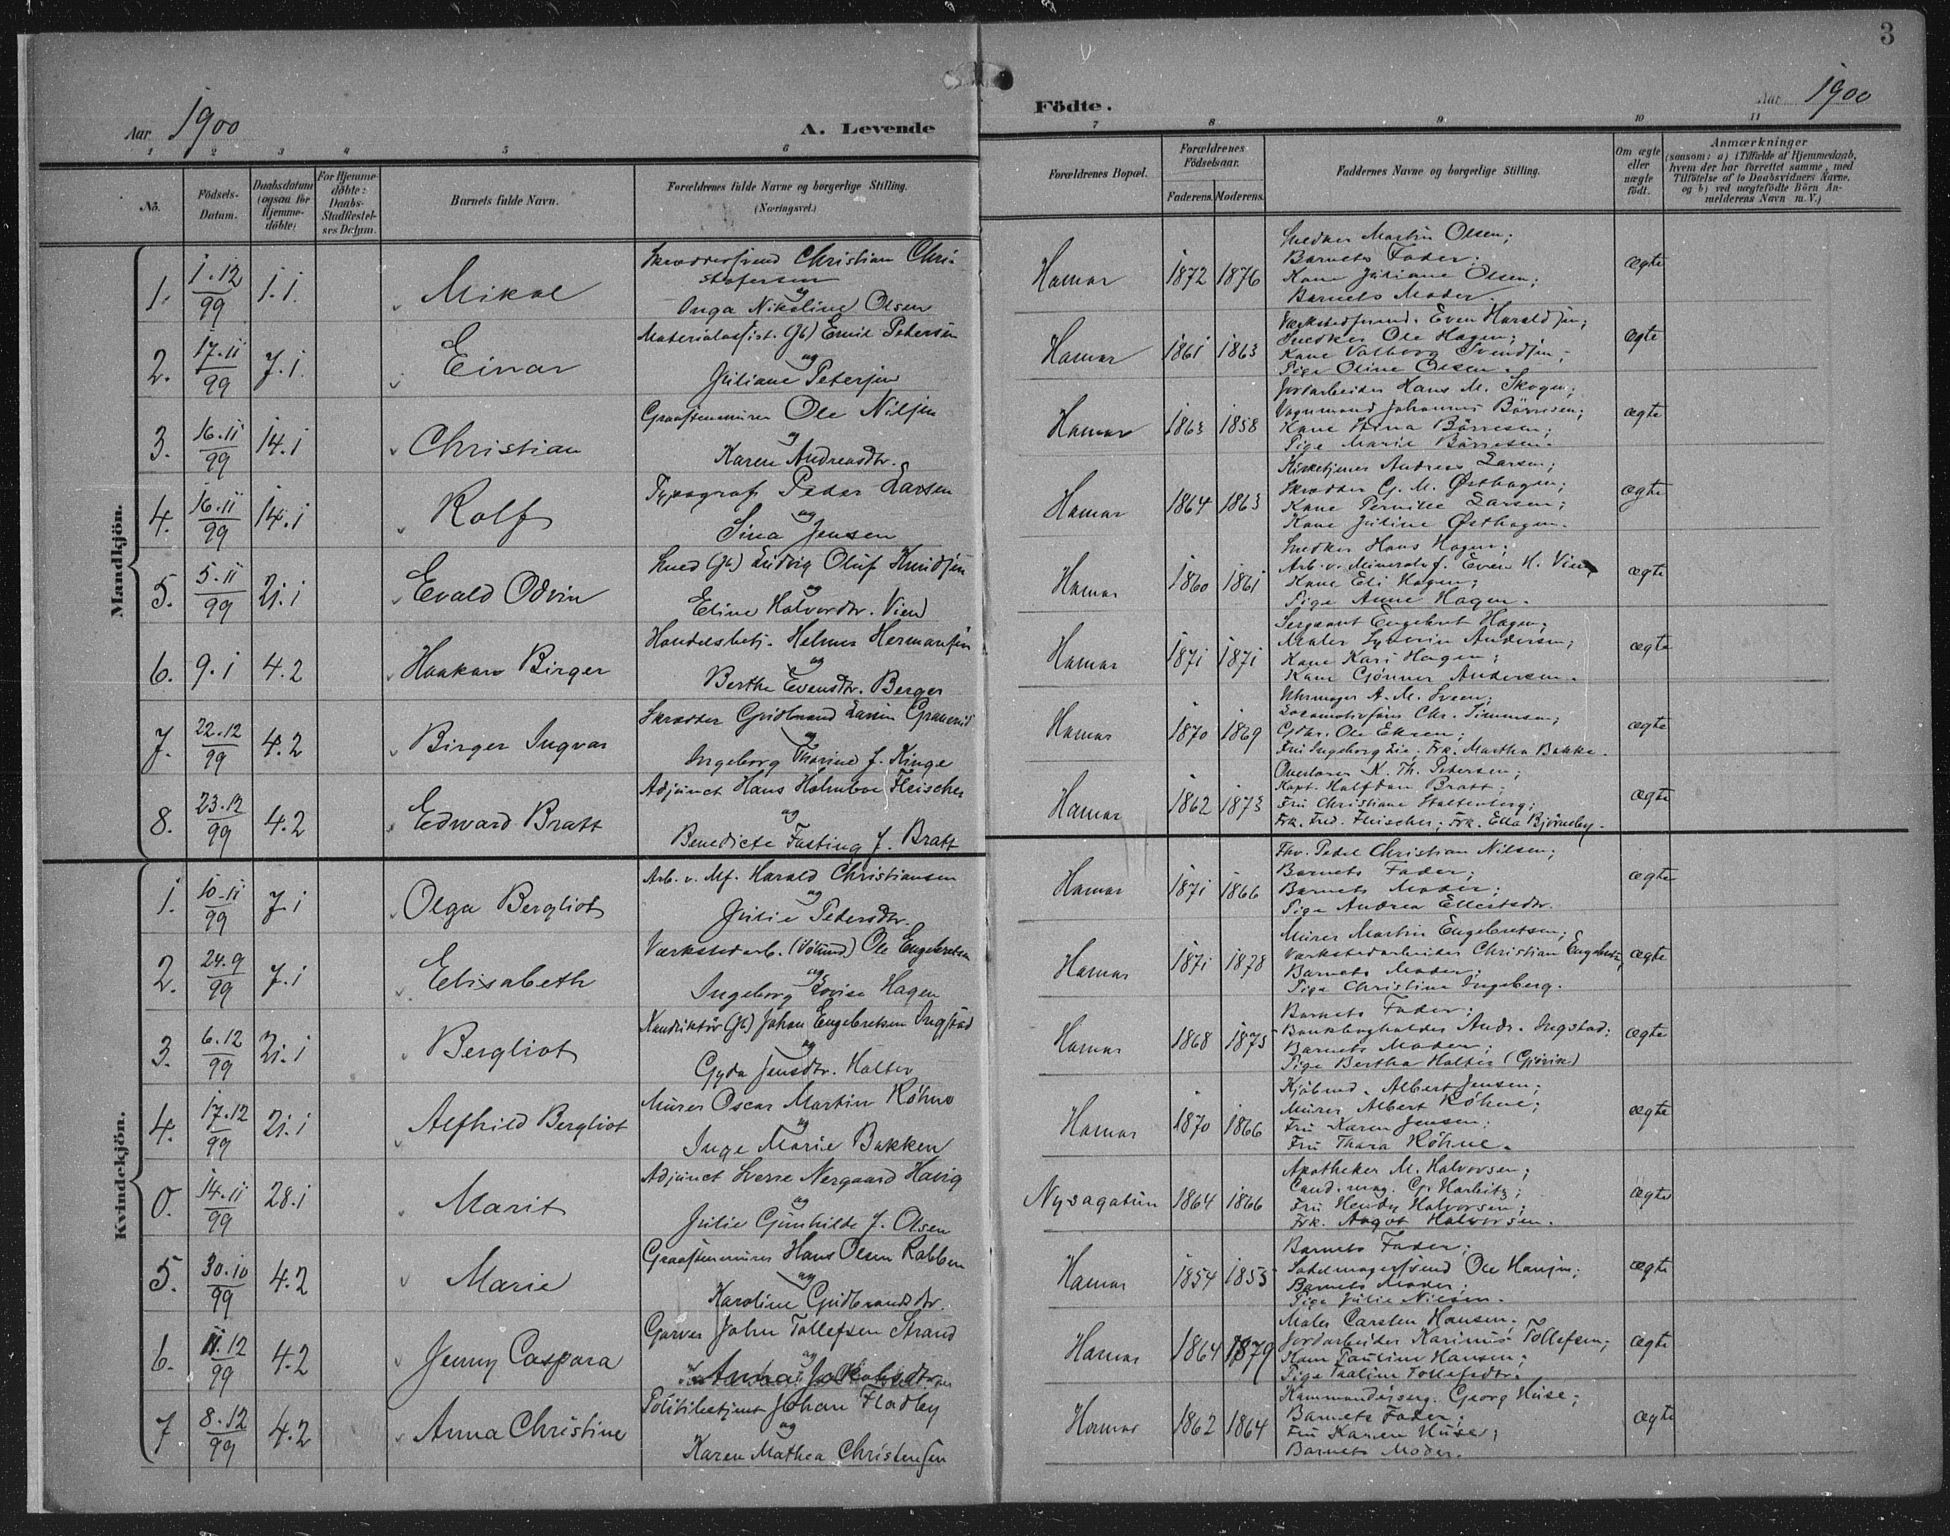 3
Aar 1900
A. Levende
Födte.
Aar 1900
1 2 3 4 5 6 7 8 9 10 11
No.
Födsels-Datum.
Daabsdatum (ogsaa for Hjemme-döbte)
For Hjemme-döbte: Daabs-Stadfæstel-ses Datum.
Barnets fulde Navn.
Forældrenes fulde Navne og borgerlige Stilling.
(Næringsvei.)
Forældrenes Bopæl.
Forældrenes Födselsaar.
Faderens. Moderens.
Faddernes Navne og borgerlige Stilling.
Om ægte eller uægte födt.
Anmærkninger
(saasom: a) i Tilfælde af Hjemmedaab,
hvem der har forrettet samme, med
Tilföielse af to Daabsvidners Navne,
og b) ved uægtefödte Börn An-
melderens Navn m. V.)
Mandkjön.
1. 1.12/99 1.1. Mikal
Skræddersvend Christian Chri-
stofersen
og
Inga Nikoline Olsen
Hamar 1872 1876
Snedker Martin Olsen;
Barnets Fader;
Kone Juliane Olsen;
Barnets Moder.
ægte
2. 17.11/99 7.1. Einar
Materialassist. (Jb) Emil Petersen
og
Juliane Petersen
Hamar 1861 1863
Værkstedformd. Even Haraldsen;
Snedker Ole Hagen;
Kone Valborg Svendsen;
Pige Oline Olsen.
ægte
3. 16.11/99 14.1 Christian
Graastensmurer Ole Nilsen
og
Karen Andreasdtr.
Hamar 1863 1858
Jordarbeider Hans M. Skogen;
Vognmand Johannes Börresen;
Kone Stina Börresen;
Pige Marie Börresen.
ægte
4. 16.11/99 14.1 Rolf
Typograf Peder Larsen
og
Sina Jensen
Hamar 1864 1863
Kirketjener Andreas Larsen;
Skrædder G. M. Østhagen;
Kone Pernille Larsen;
Kone Juline Østhagen.
ægte
5. 5.11/99 21.1 Evald Odvin
Smed (Jb) Ludvig Oluf Knudsen
og
Eline Halvordtr. Vien
Hamar 1860 1861
Snedker Hans Hagen;
Arb. v. Mineralvf. Even H. Vien
Kone Eli Hagen;
Pige Anne Hagen.
ægte
6. 9.1 4.2 Haakon Birger
Handelsbetj. Helmer Hermansen
og
Berthe Evensdtr. Berger
Hamar 1871 1871
Sergeant Engebret Hagen;
Maler Syverin Andersen;
Kone Kari Hagen;
Kone Gjönner Andersen.
ægte
7. 22.12/99 4.2 Birger Ingvar
Skrædder Gudbrand Larsen
og
Ingeborg Thorine f. Ringe
Hamar 1870 1869
Uhrmager A. M. Sveen;
Locomotivförer Chr. Simensen;
Gdbr. Ole Ekren;
Fru Ingeborg Lie; Frk. Martha Bakke.
ægte
8. 23.12/99 4.2 Edward Bratt
Adjunct Hans Holmboe Fleischer
og
Benedicte Fasting f. Bratt
Hamar 1862 1873
Overlærer K. Th. Petersen;
Kapt. Halfdan Bratt;
Fru Christiane Stoltenberg;
Frk. Fred. Fleischer; Frk. Ella Bjørneby.
ægte
Kvindekjön.
1. 10.11/99 7.1 Olga Bergliot
Arb. v. Mf. Harald Christiansen
og
Julie Petersdtr.
Hamar 1871 1866
Fhv. Pedel Christian Nilsen;
Barnets Fader;
Barnets Moder;
Pige Andrea Ellertsdtr.
ægte
2. 24.9/99 7.1 Elisabeth
Værkstedarb. Ole Engebretsen
og
Ingeborg Lovise Hagen
Hamar 1871 1878
Murer Martin Engebretsen;
Værkstedarbeider Christian Engebretsen;
Barnets Moder;
Pige Christine Ingeberg.
ægte
3. 6.12/99 21.1 Bergliot
Konduktör (Jb) Johan Engebretsen Ingstad
og
Gyda Jensdtr. Halter
Hamar 1868 1875
Barnets Fader;
Bankbogholder Andr. Ingstad;
Barnets Moder;
Pige Bertha Halter (Gjövik)
ægte
4. 17.12/99 21.1 Alfhild Bergliot
Murer Oscar Martin Köhne
og
Inge Marie Bakken
Hamar 1870 1866
Kjöbmd. Albert Jensen;
Murer Albert Köhne;
Fru Karen Jensen;
Fru Thora Köhne.
ægte
0. 14.11/99 28.1 Marit
Adjunct Sverre Nergaard Havig
og
Julie Gunhilde f. Olsen
Nysagatun 1864 1866
Apotheker M. Halvorsen;
Cand. mag. G. Harbitz;
Fru Hendy Halvorsen;
Frk. Aagot Halvorsen.
ægte
5. 30.10/99 4.2 Marie
Graastensmurer Hans Olsen Rabben
og
Karoline Gudbrandsdtr.
Hamar 1854 1853
Barnets Fader;
Sadelmagersvend Ole Hansen;
Barnets Moder;
Pige Julie Nilsen.
ægte
6. 11.12/99 4.2 Jenny Caspara
Garver John Tollefsen Strand
og
Anna Jakobsdtr.
Hamar 1864 1879
Maler Carsten Hansen;
Jordarbeider Karinus Tollefsen;
Kone Pauline Hansen;
Pige Pauline Tollefsdtr.
ægte
7 8.12/99 4.2 Anna Christine
Politibetjent Johan Fladby
og
Karen Mathea Christensen
Hamar 1862 1864
Georg Huse;
Barnets Fader;
Fru Karen Huse;
Barnets Moder.
ægte